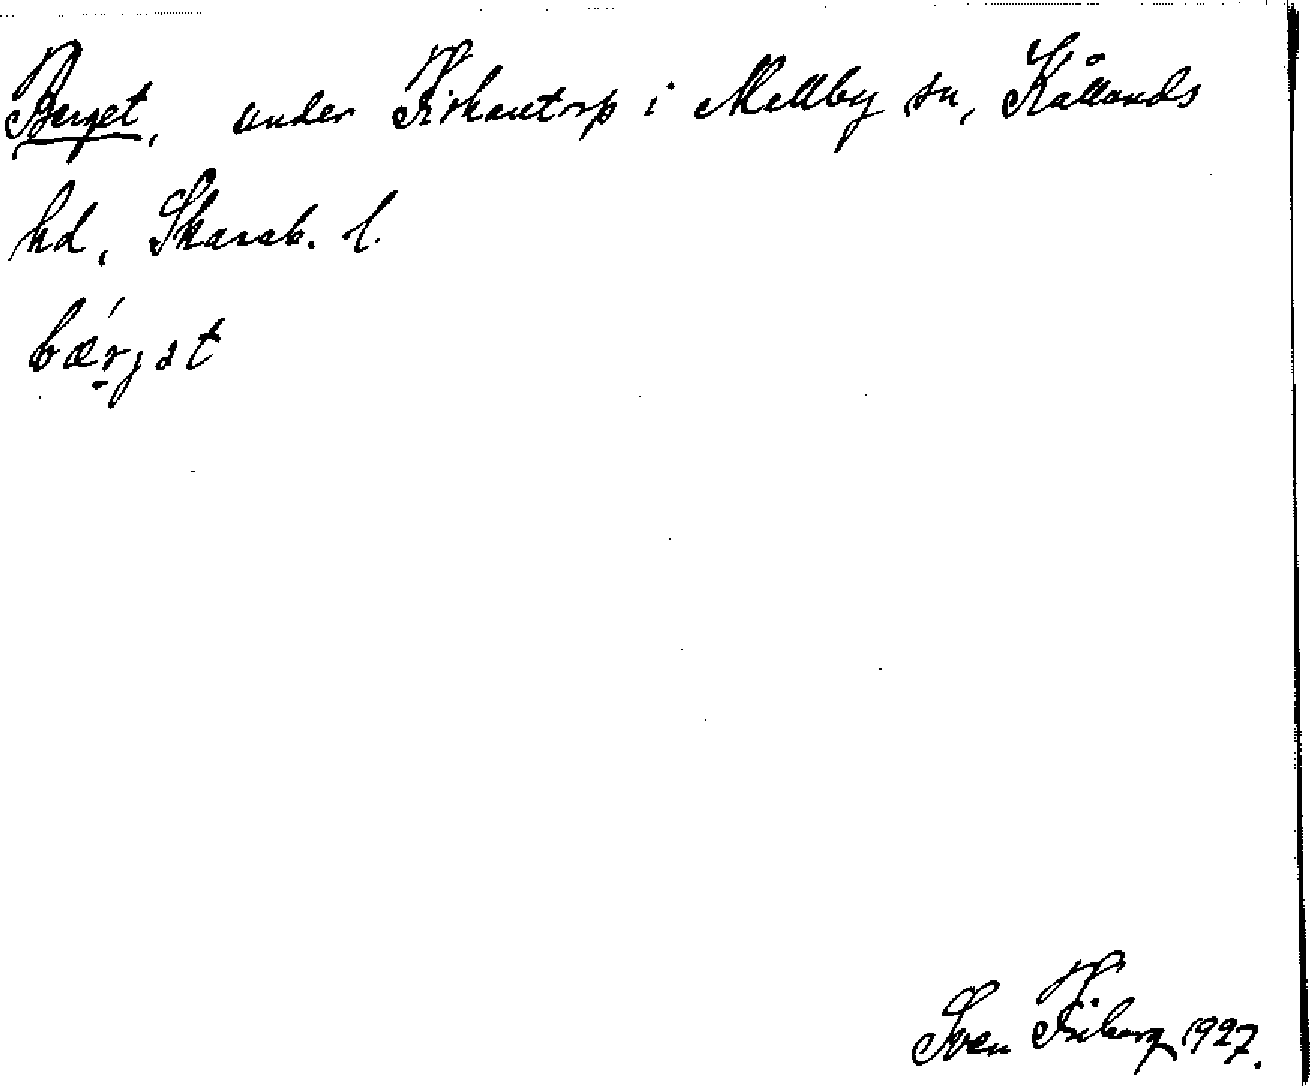 Berget, under Fiskartorp i Mellby sn, Kållands
hd, Skarab. l.
bǽrjət
Sven Friberg 1927.